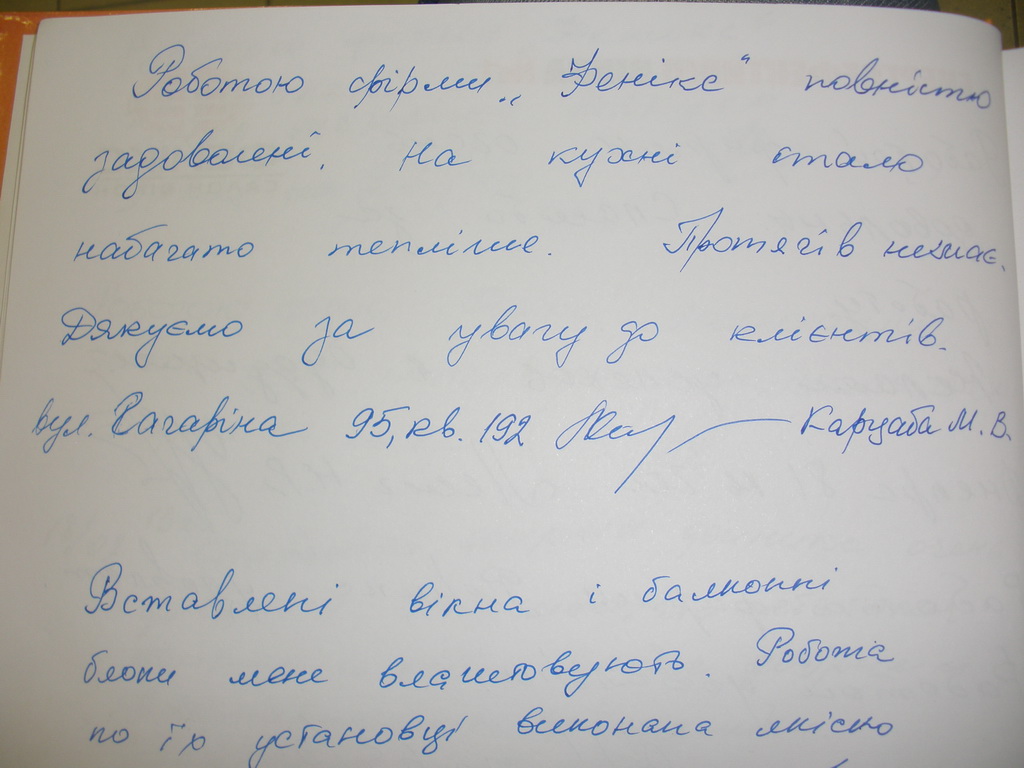 Роботою фірми „Фенікс“ повністю
задоволені. На кухні стало
набагато тепліше. Протягів немає.
Дякуємо за увагу до клієнтів.
вул. Гагаріна 95, кв. 192 Карцаба М. В.
Вставлені вікна і балконні
блоки мене влаштовують. Робота
по їх установці виконана якісно